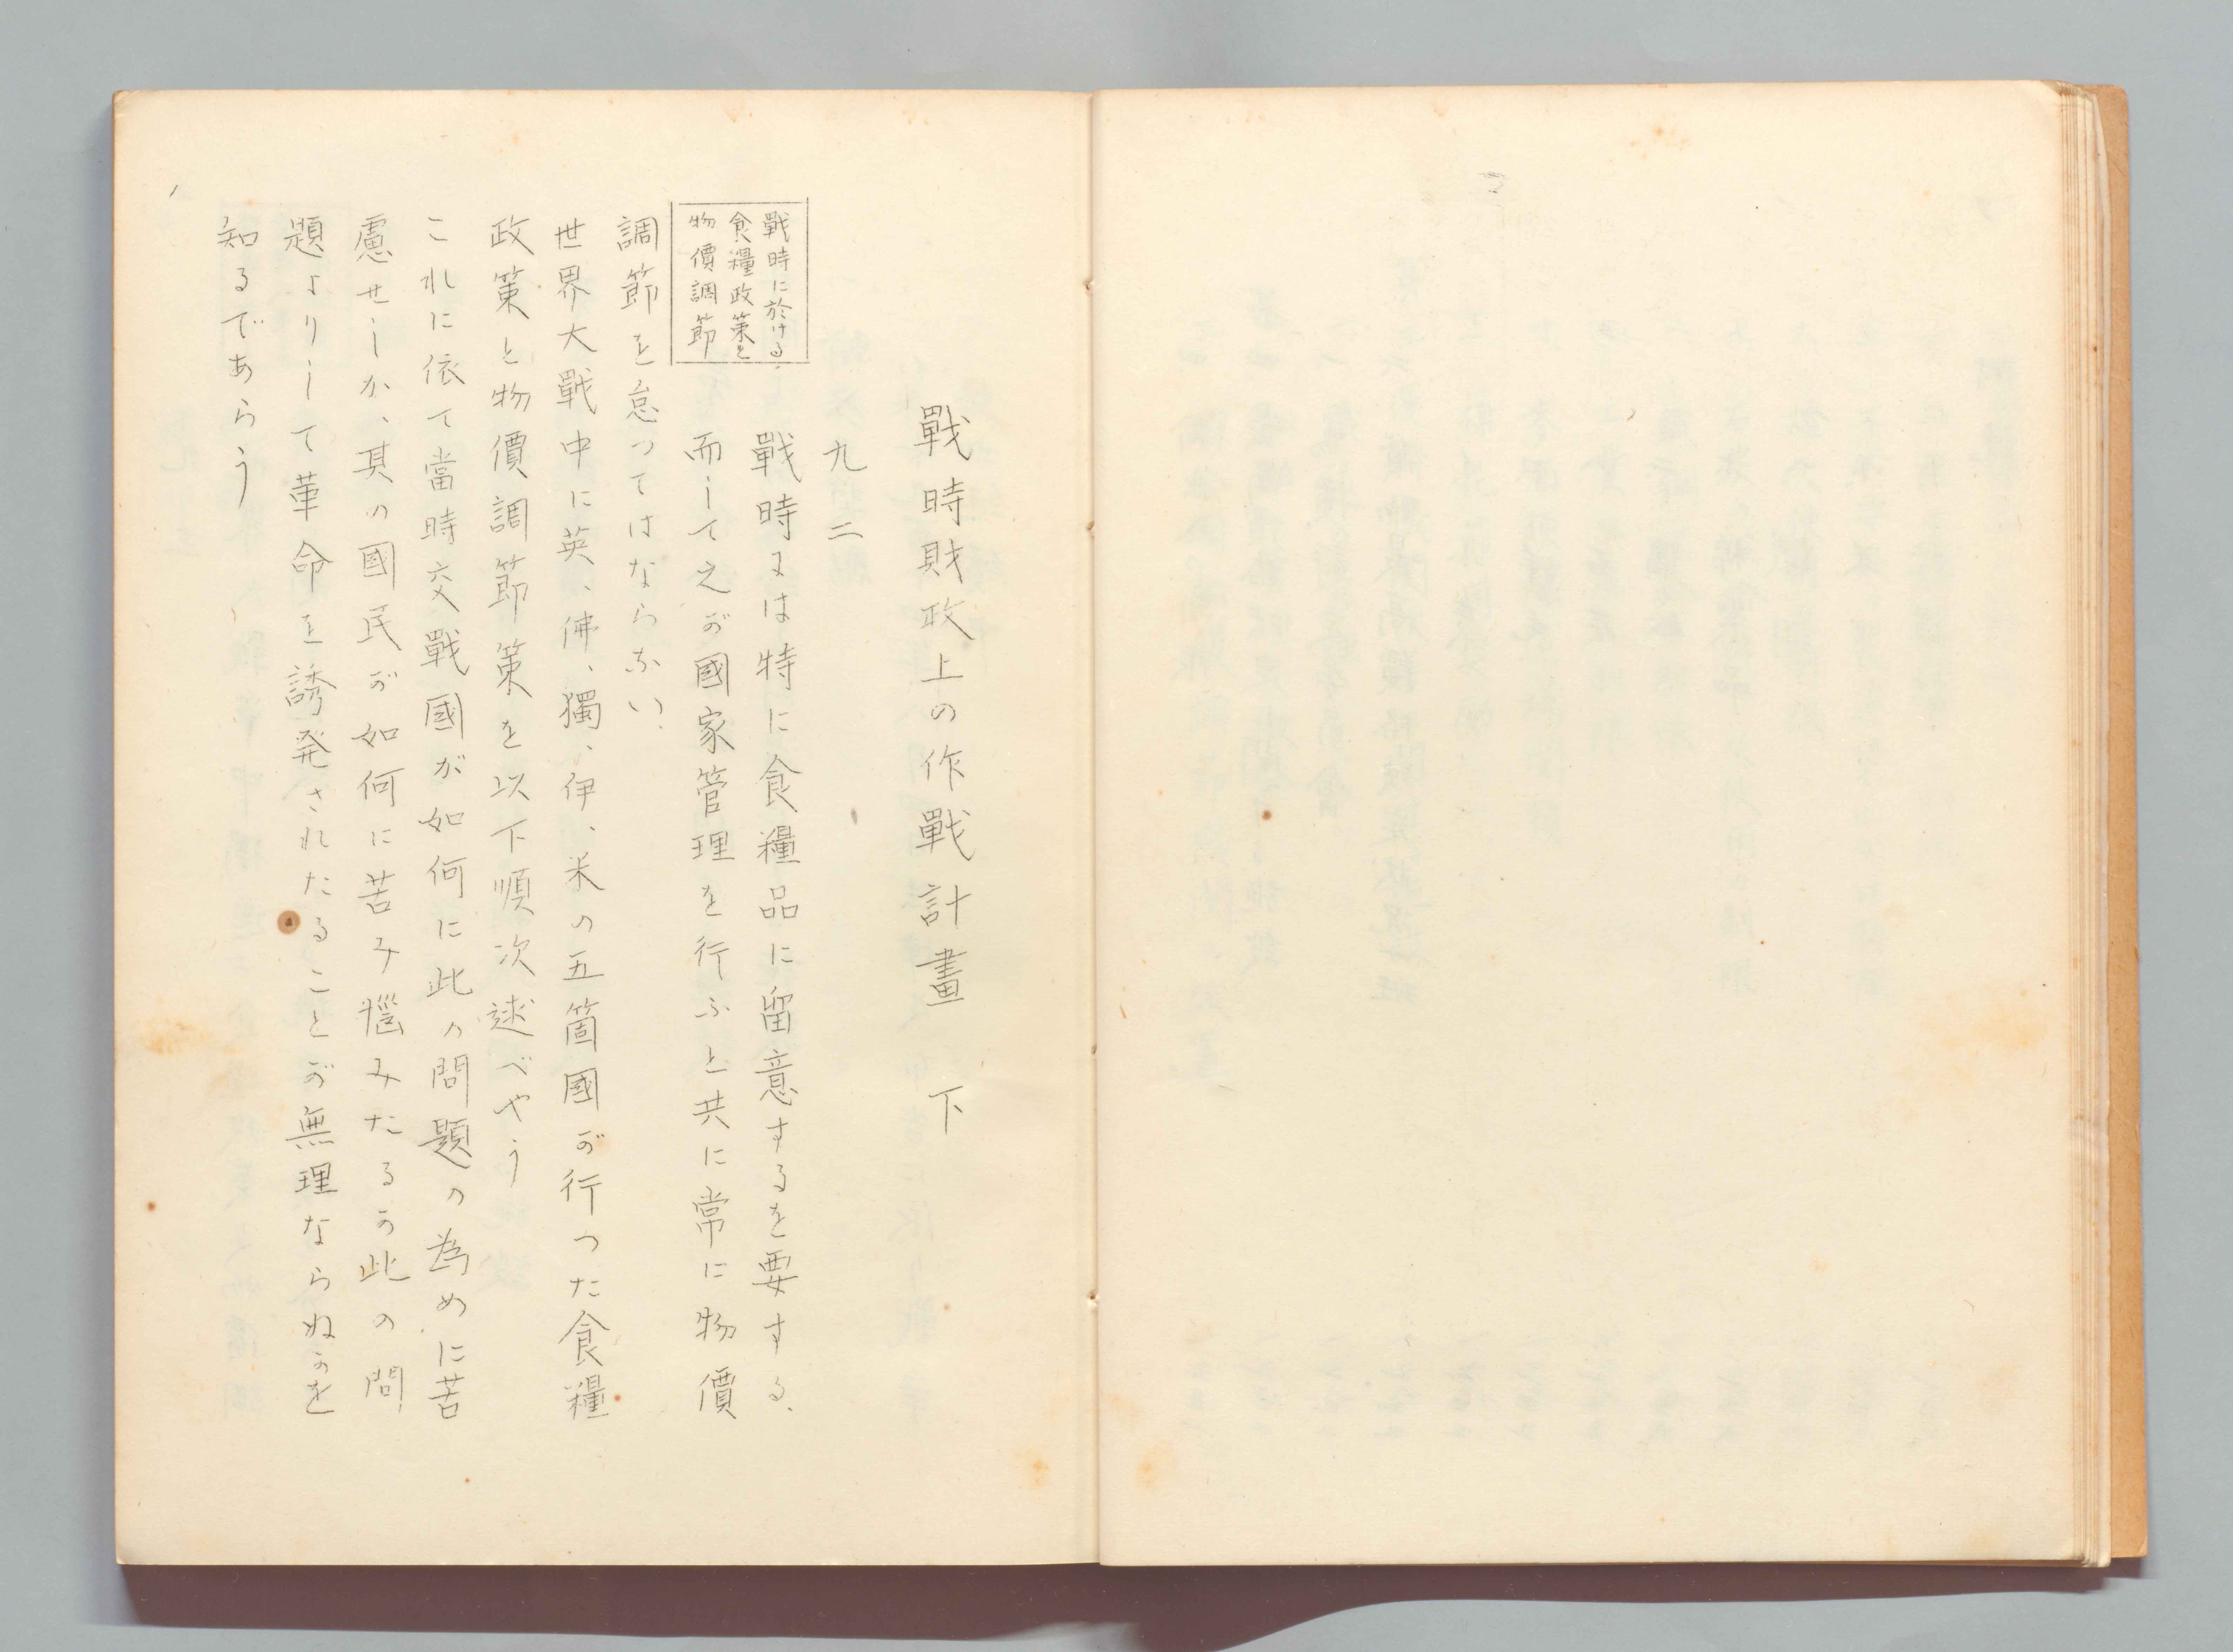 戰時財政上の作戰計畫　下
九二
戰時に於ける
食糧政策と
物價調節
戰時には特に食糧品に留意するを要する、
而して之が國家管理を行ふと共に常に物價
調節を怠つてはならない、
世界大戰中に英、佛、獨、伊、米の五箇國が行つた食糧
政策と物價調節策を以下順次述べやう
これに依て當時交戰國が如何に此の問題の為めに苦
慮せしか、其の國民が如何に苦み惱みたるか此の問
題よりして革命を誘発されたることが無理ならぬかを
知るであらう